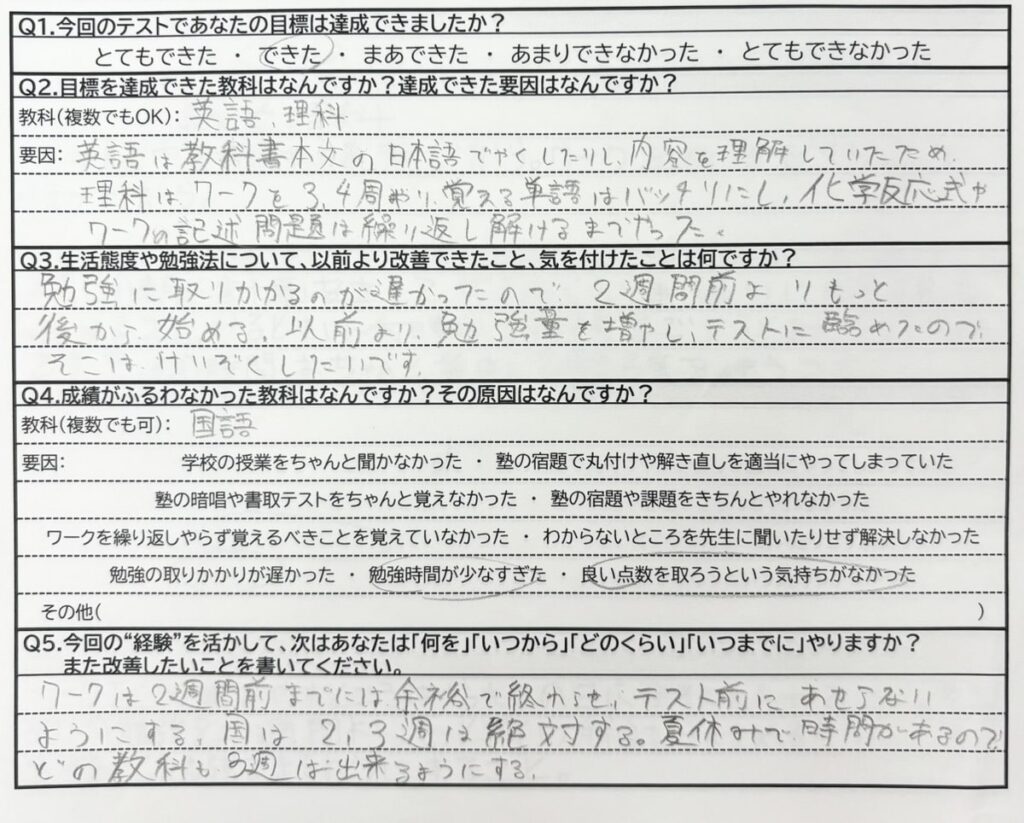 Q1.今回のテストであなたの目標は達成できましたか？
とてもできた ・ できた ・ まあできた ・ あまりできなかった ・ とてもできなかった
Q2.目標を達成できた教科はなんですか？達成できた要因はなんですか？
教科(複数でもOK)： 英語、理科
要因： 英語は教科書本文の日本語でやくしたりし、内容を理解していたため。
理科は、ワークを3,4周やり、覚える単語はバッチリにし、化学反応式や
ワークの記述問題は繰り返し解けるまでやった。
Q3.生活態度や勉強法について、以前より改善できたこと、気を付けたことは何ですか？
勉強に取りかかるのが遅かったので、2週間前よりもっと
後から始める。以前より、勉強量を増やし、テストに臨めたので、
そこは、けいぞくしたいです。
Q4.成績がふるわなかった教科はなんですか？その原因はなんですか？
教科(複数でも可)： 国語
要因： 学校の授業をちゃんと聞かなかった ・ 塾の宿題で丸付けや解き直しを適当にやってしまっていた
塾の暗唱や書取テストをちゃんと覚えなかった ・ 塾の宿題や課題をきちんとやれなかった
ワークを繰り返しやらず覚えるべきことを覚えていなかった ・ わからないところを先生に聞いたりせず解決しなかった
勉強の取りかかりが遅かった ・ 勉強時間が少なすぎた ・ 良い点数を取ろうという気持ちがなかった
その他( )
Q5.今回の“経験”を活かして、次はあなたは「何を」「いつから」「どのくらい」「いつまでに」やりますか？
また改善したいことを書いてください。
ワークは2週間前までには余裕で終わらせ、テスト前にあせらない
ようにする。国は2,3週は絶対する。夏休みで時間があるので、
どの教科も3週は出来るようにする。